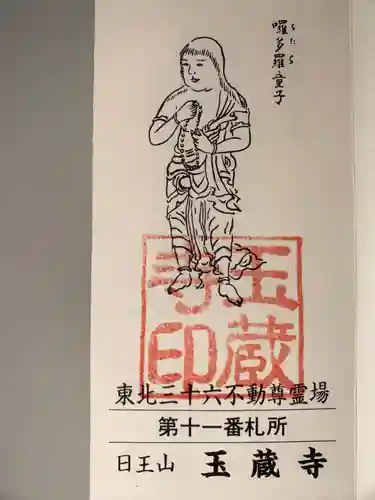 囉多羅童子
らたら
玉蔵寺印
東北三十六不動尊霊場
第十一番札所
日王山 玉蔵寺